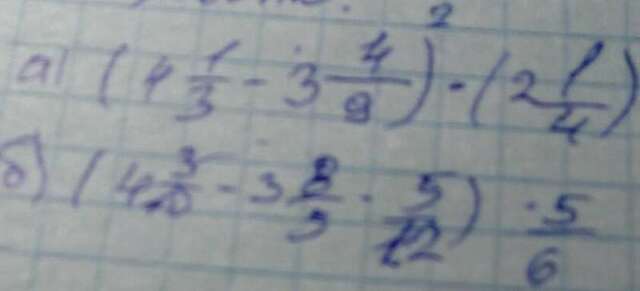 а) (4 1/3 - 3 4/9)² · (2 1/4)
б) (4 - 3 8/9 · 5/12) · 5/6